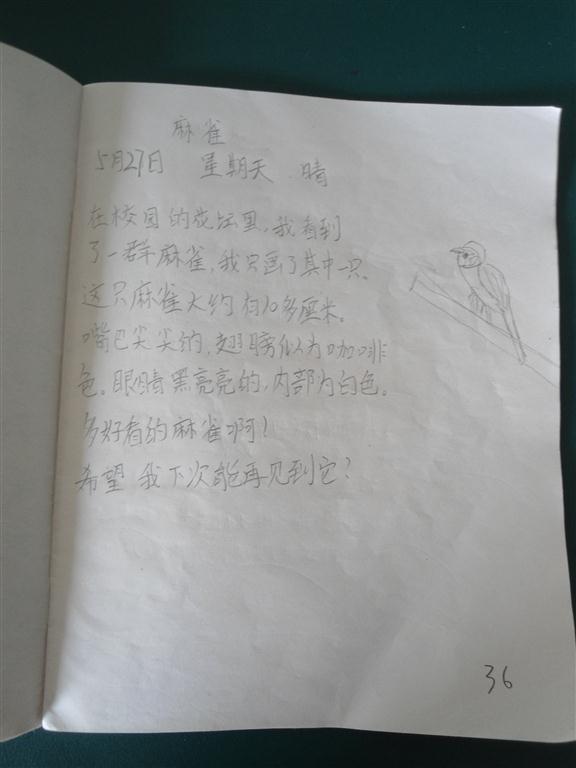 麻雀
5月27日 星期天 晴
在校园的花坛里,我看到
了一群麻雀,我只画了其中一只。
这只麻雀大约有10多厘米。
嘴巴尖尖的,翅膀似为咖啡
色。眼睛黑亮亮的,内部为白色。
多好看的麻雀啊!
希望我下次能再见到它?
36